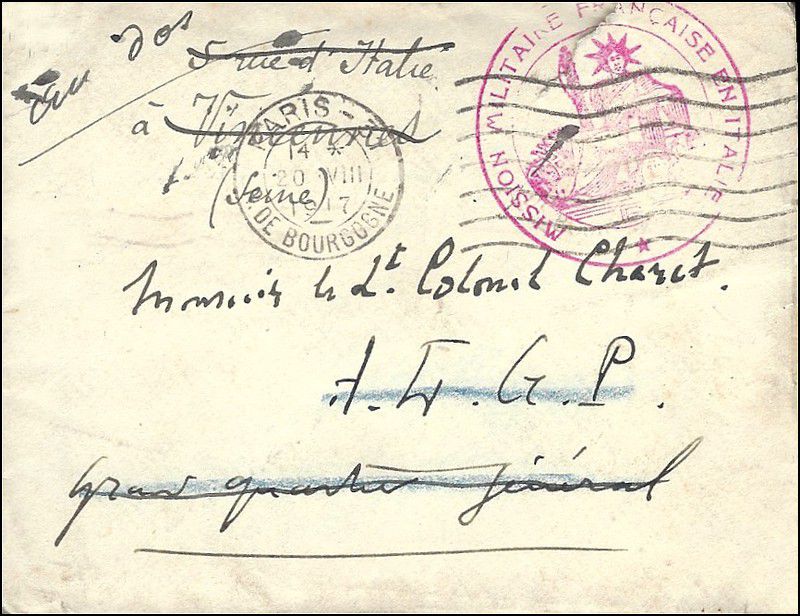 au dos
5 rue d'Italie
à Vincennes
(Seine)
MISSION MILITAIRE FRANÇAISE EN ITALIE
PARIS
14 *
20 VIII
1917
DE BOURGOGNE
Monsieur le Lt. Colonel
A. G. P.
Grand quartier Général